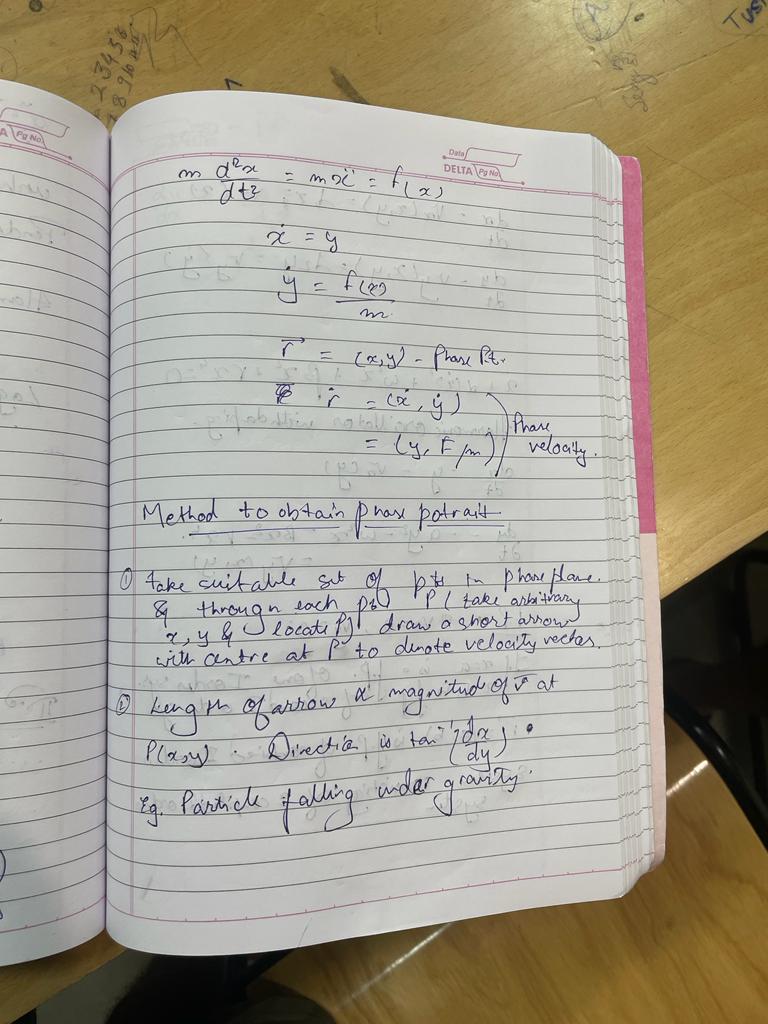 Data
DELTA Pg No.
A Pg No.
m d²x/dt² = mẍ = f(x)
ẋ = y
ẏ = f(x)/m
r⃗ = (x,y) - Phase Pt.
ṙ = (ẋ, ẏ)
= (y, F/m)
Phase velocity.
Method to obtain phase potrait
① take suitable set of pts in phase plane.
& through each pt P (take arbitrary
x, y & locate P) draw a short arrow
with centre at P to denote velocity vector.
② Length of arrow α magnitud of v at
P(x,y). Direction is tan⁻¹(dx/dy).
Eg. Particle falling under gravity.